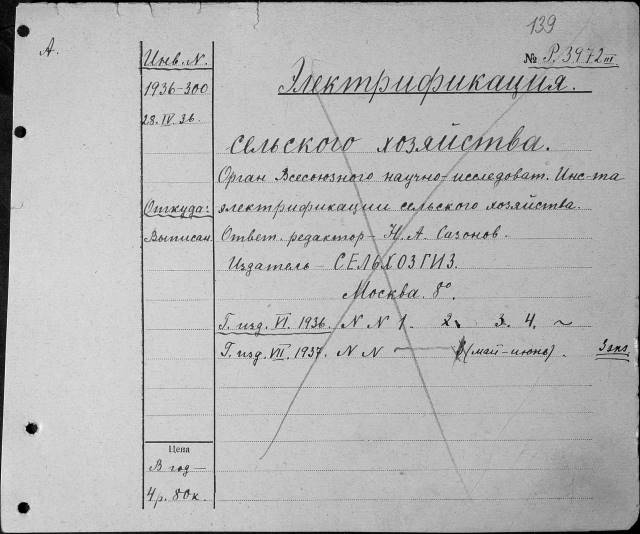 139
А.
№ Р. 3972 III
Инв. N.
1936-300
28. IV. 36.
Электрификация.
сельского хозяйства.
Орган Всесоюзного научно-исследоват. Инс-та
Откуда: электрификации сельского хозяйства.
Выписан. Ответ. редактор - Н. А. Сазонов.
Издатель - СЕЛЬХОЗГИЗ.
Москва. 8º.
Г. изд. VI. 1936. N N 1. 2. 3. 4. ~
Г. изд. VII. 1937. N N — (май-июнь). 3 экз
Цена
В год —
4 р. 80 к.